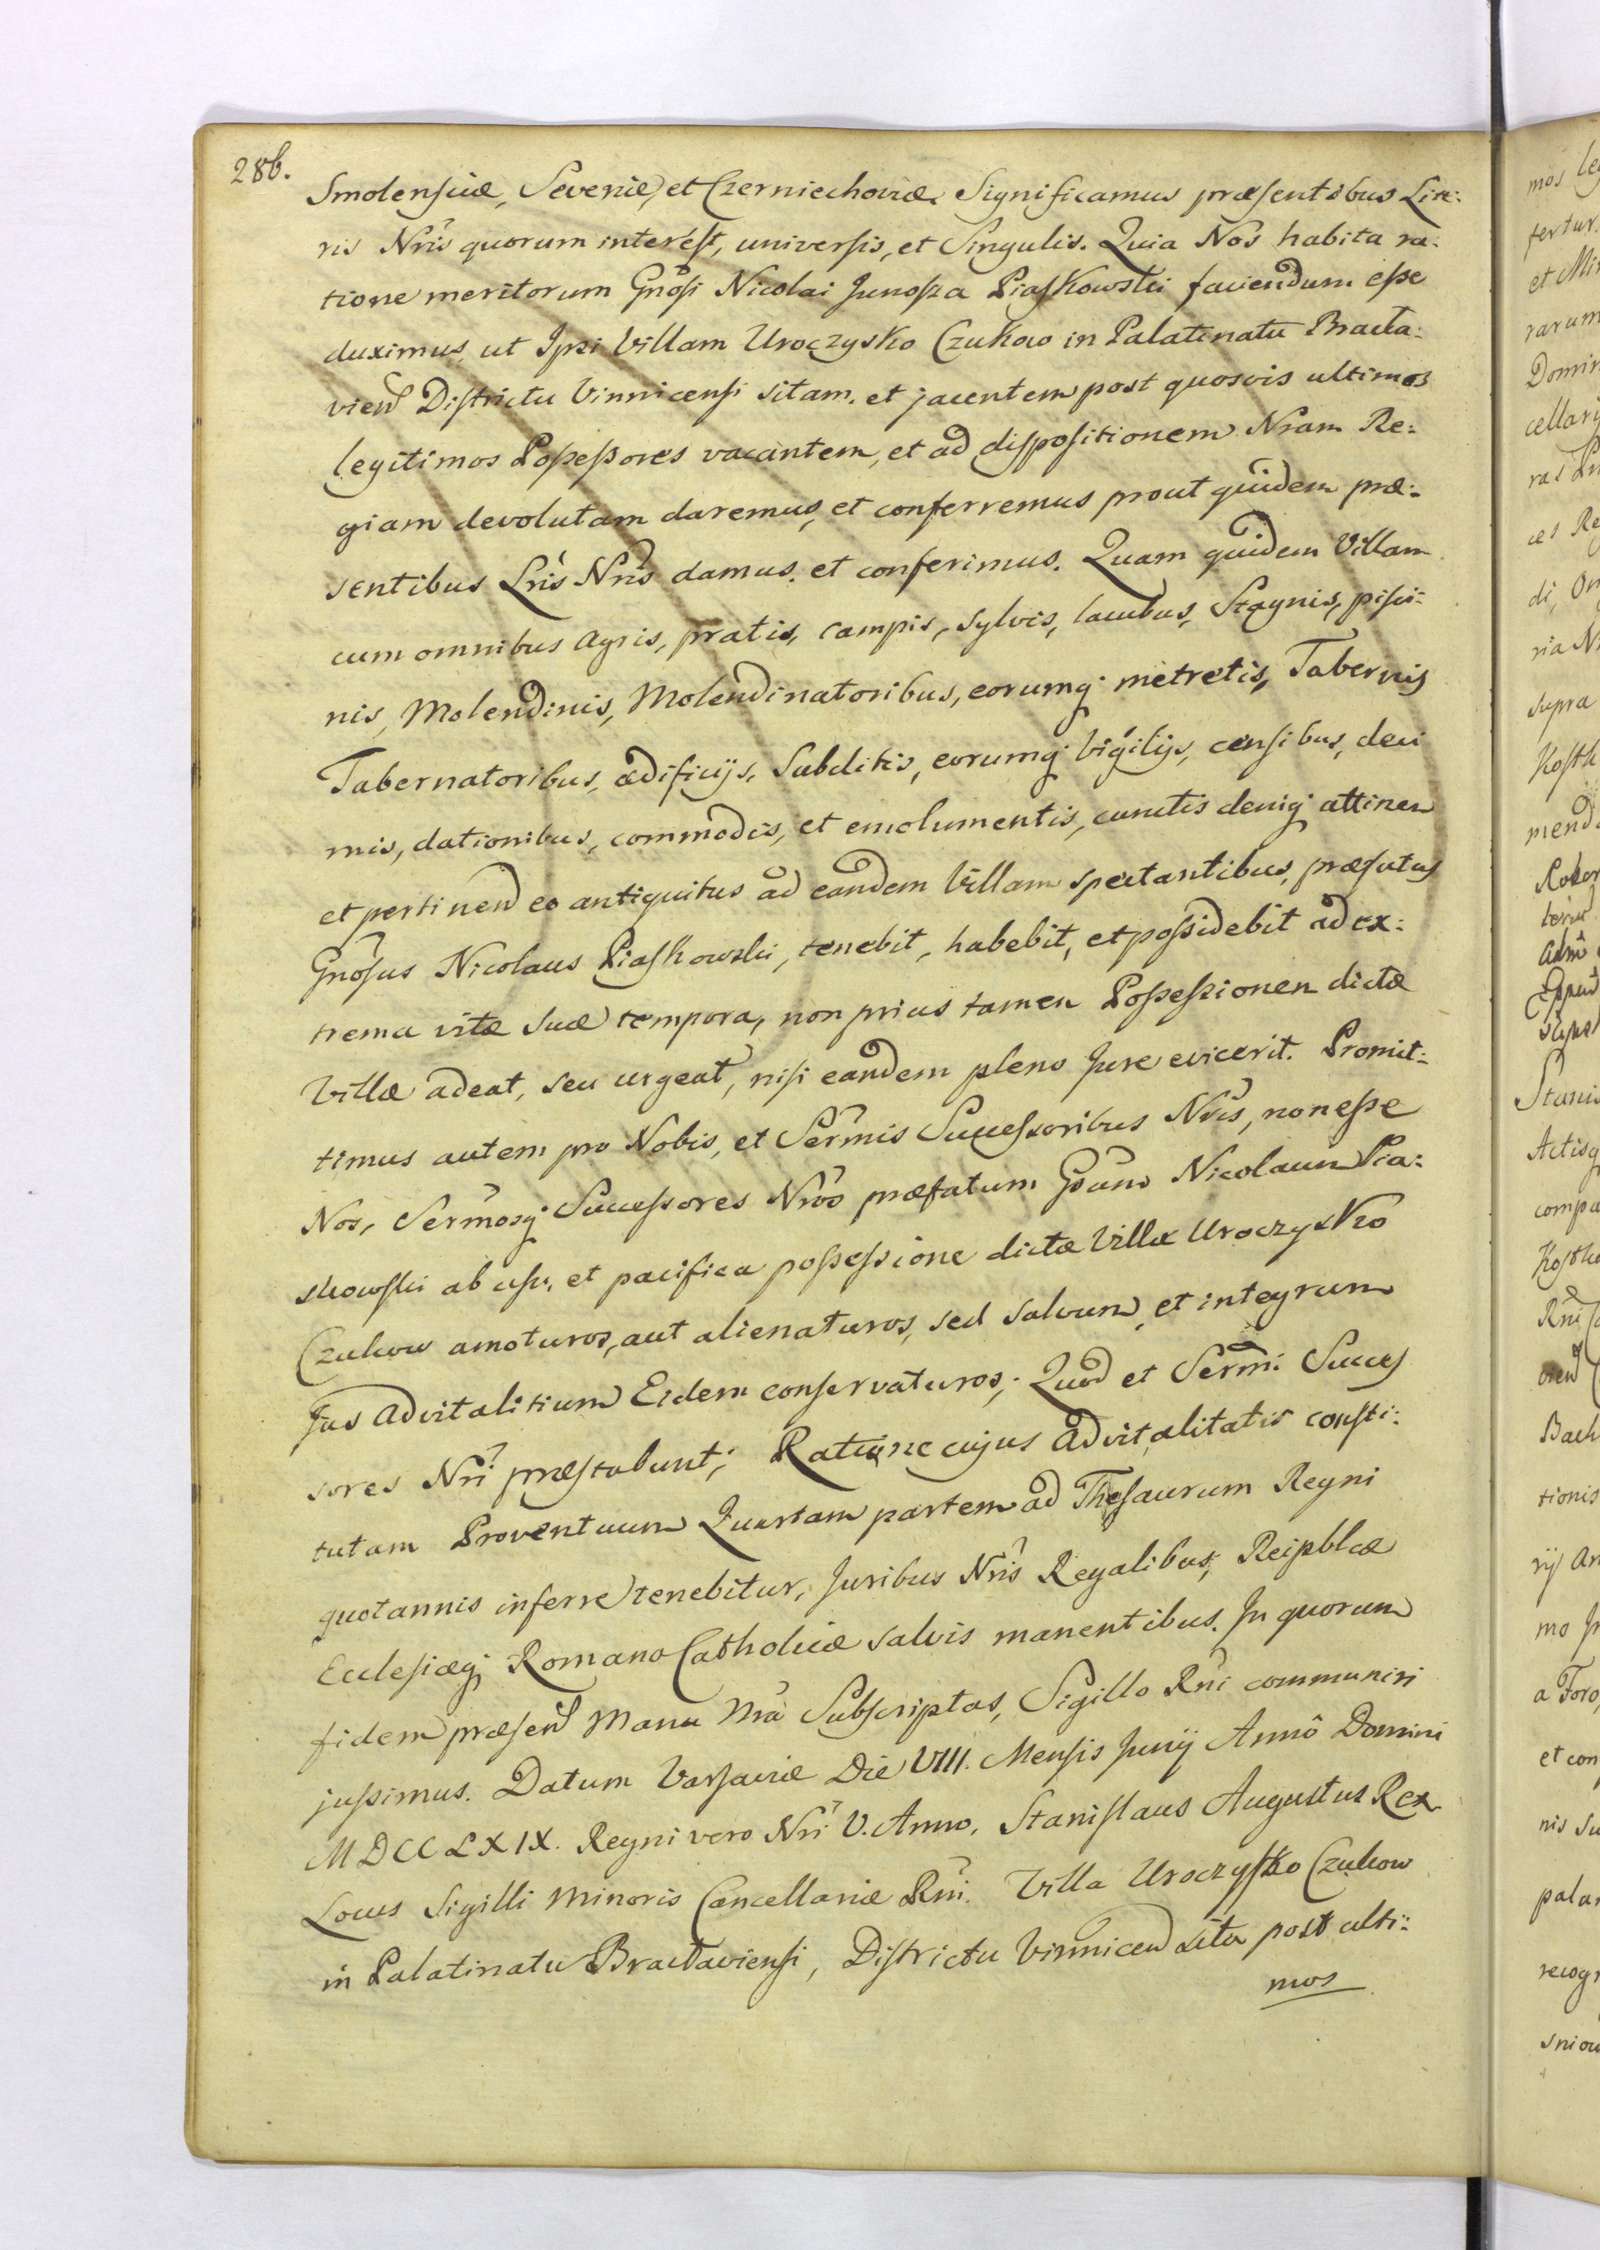 286.
Smolensciæ, Severiæ, et Czerniechoviæ. Significamus præsentibus Litte:
ris Nris quorum interest, universis, et Singulis. Quia Nos habita ra:
tione meritorum Gnosi Nicolai Junosza Piaskowski faciendum esse
duximus, ut Ipsi Villam Uroczysko Czukow in Palatinatu Bracla:
vien Districtu Vinnicensi sitam, et jacentem post quosvis ultimos
legitimos Possessores vacantem, et ad dispositionem Nram Re:
giam devolutam daremus, et conferremus prout quidem præ:
sentibus Lris Nris damus, et conferimus. Quam quidem Villam
cum omnibus Agris, pratis, campis, Sylvis, lacubus, Stagnis, pisci:
nis, Molendinis, Molendinatoribus, eorumq; metretis, Tabernis
Tabernatoribus, ædificijs, Subditis, eorumq; Vigilijs, censibus, deci
mis, dationibus, commodis, et emolumentis, cunctis deniq; attinen
et pertinen eo antiquitus ad eandem Villam spectantibus, præfatus
Gnosus Nicolaus Piaskowski, tenebit, habebit, et possidebit ad ex:
trema vitæ suæ tempora, non prius tamen Possessionen dictæ
Villæ adeat, seu urgeat, nisi eandem pleno Jure evicerit. Promit:
timus autem pro Nobis, et Sermis Successoribus Nris, non esse
Nos, Sermosq; Successores Nros præfatum Gnum Nicolaum Pia:
skowski ab usu, et pacifica possessione dictæ Villæ Uroczysko
Czukow amoturos, aut alienaturos, sed salvum, et integrum
Jus Advitalitium Eidem conservaturos; Quod et Sermi Succes
sores Nri præstabunt; Ratione cujus Advitalitatis consti:
tutam Proventuum Quartam partem ad Thesaurum Regni
quotannis inferre tenebitur, Juribus Nris Regalibus, Reipblcæ
Ecclesiæq; Romano Catholicæ salvis manentibus. In quorum
fidem præsen Manu Nra Subscriptas, Sigillo Rni communiri
jussimus. Datum Varsaviæ Die VIII. Mensis Junij Annô Domini
MDCCLXIX. Regni vero Nri V. Anno. Stanislaus Augustus Rex
Locus Sigilli Minoris Cancellariæ Rni. Villa Uroczysko Czukow
in Palatinatu Braclaviensi, Districtu Vinnicen sita post ulti:
mos